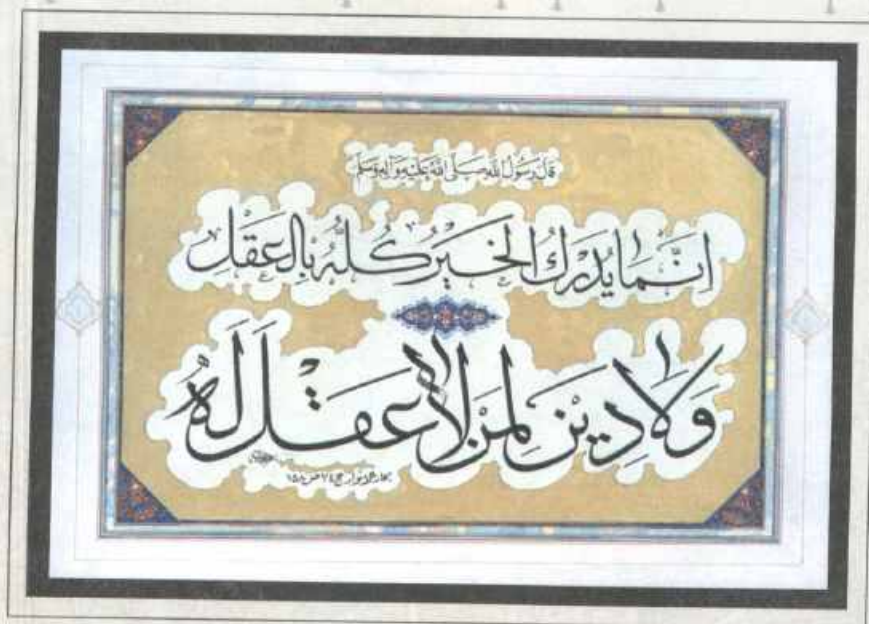 قَالَ رَسُولُ اللّٰهِ صَلَّى اللّٰهُ عَلَيْهِ وَالِهِ وَسَلَّمَ
اِنَّمَا يُدْرَكُ الْخَيْرُ كُلُّهُ بِالْعَقْلِ
وَلَا دِينَ لِمَنْ لَا عَقْلَ لَهُ
بحار الانوار ج ٧٤ ص ١٥٨